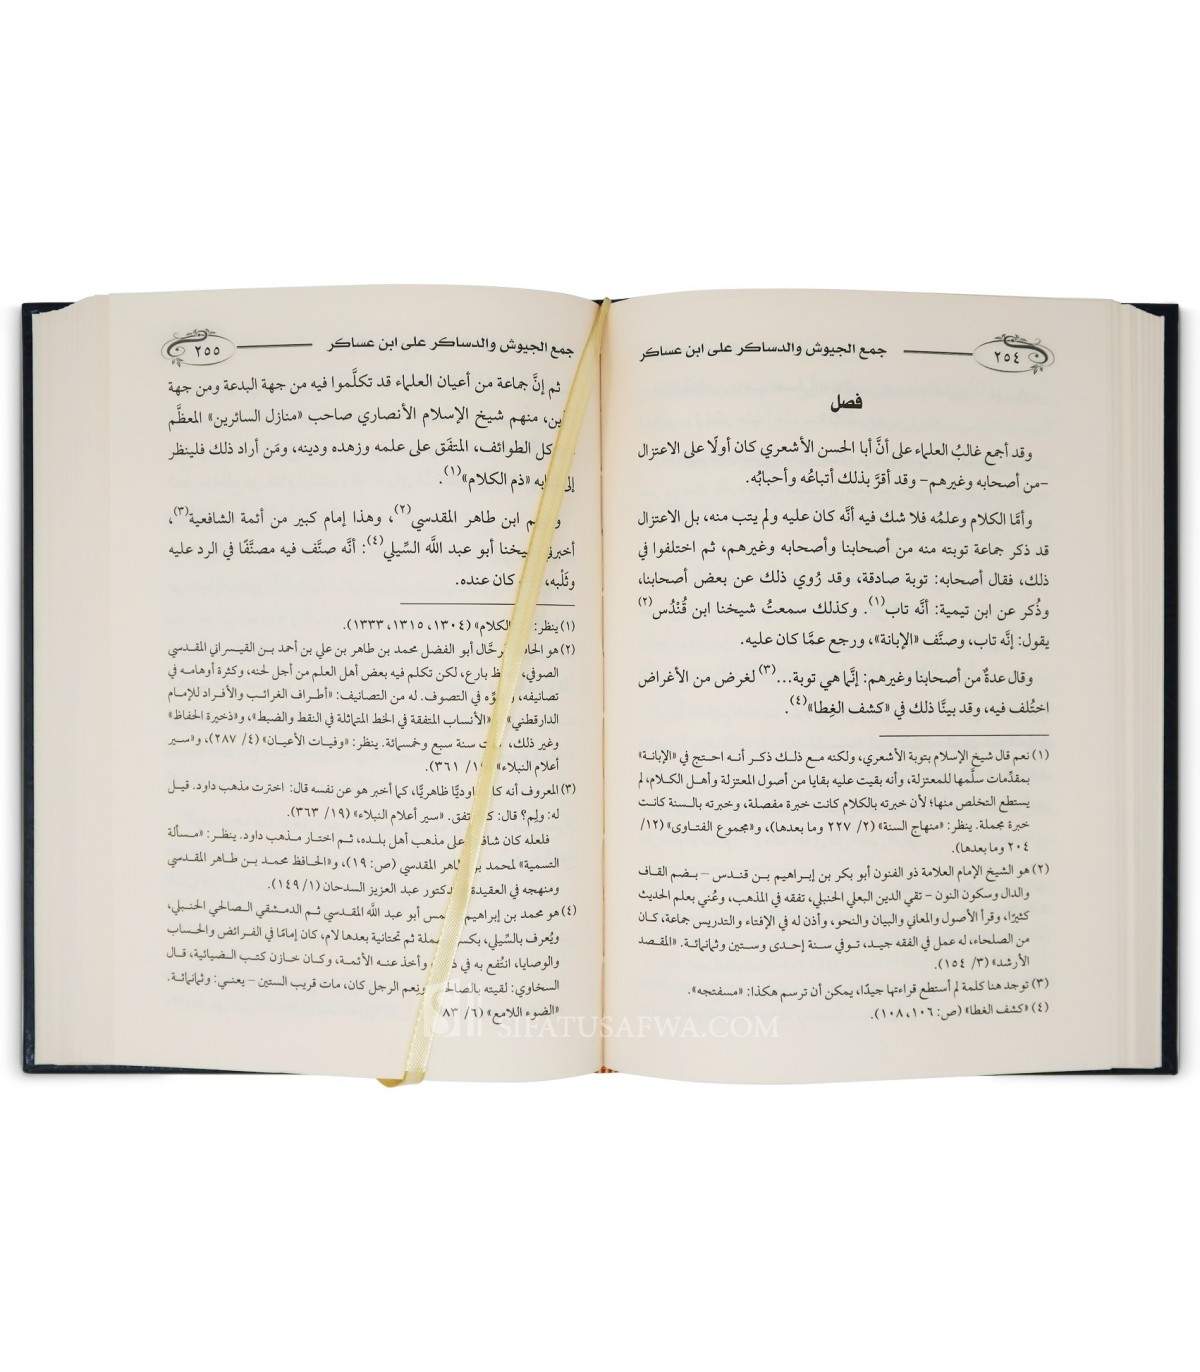 ٢٥٤
جمع الجيوش والدساكر على ابن عساكر
فصل
وقد أجمع غالبُ العلماء على أنَّ أبا الحسن الأشعري كان أولًا على الاعتزال
-من أصحابه وغيرهم- وقد أقرَّ بذلك أتباعُه وأحبابُه.
وأمَّا الكلام وعلمُه فلا شك فيه أنَّه كان عليه ولم يتب منه، بل الاعتزال
قد ذكر جماعة توبته منه من أصحابنا وأصحابه وغيرهم، ثم اختلفوا في
ذلك، فقال أصحابه: توبة صادقة، وقد رُوي ذلك عن بعض أصحابنا،
وذُكر عن ابن تيمية: أنَّه تاب(١). وكذلك سمعتُ شيخنا ابن قُنْدُس(٢)
يقول: إنَّه تاب، وصنَّف «الإبانة»، ورجع عمَّا كان عليه.
وقال عدةٌ من أصحابنا وغيرهم: إنَّما هي توبة...(٣) لغرض من الأغراض
اختُلف فيه، وقد بينَّا ذلك في «كشف الغِطا»(٤).
(١) نعم قال شيخ الإسلام بتوبة الأشعري، ولكنه مع ذلك ذكر أنه احتج في «الإبانة»
بمقدِّمات سلَّمها للمعتزلة، وأنه بقيت عليه بقايا من أصول المعتزلة وأهل الكلام، لم
يستطع التخلص منها؛ لأن خبرته بالكلام كانت خبرة مفصلة، وخبرته بالسنة كانت
خبرة مجملة. ينظر: «منهاج السنة» (٢/ ٢٢٧ وما بعدها)، و«مجموع الفتاوى» (١٢/
٢٠٤ وما بعدها).
(٢) هو الشيخ الإمام العلامة ذو الفنون أبو بكر بن إبراهيم بن قندس – بضم القاف
والدال وسكون النون – تقي الدين البعلي الحنبلي، تفقه في المذهب، وعُني بعلم الحديث
كثيرًا، وقرأ الأصول والمعاني والبيان والنحو، وأذن له في الإفتاء والتدريس جماعة، كان
من الصلحاء، له عمل في الفقه جيد، توفي سنة إحدى وستين وثمانمائة. «المقصد
الأرشد» (٣/ ١٥٤).
(٣) توجد هنا كلمة لم أستطع قراءتها جيدًا، يمكن أن ترسم هكذا: «مسفتجه».
(٤) «كشف الغطا» (ص: ١٠٦، ١٠٨).
جمع الجيوش والدساكر على ابن عساكر
٢٥٥
ثم إنَّ جماعة من أعيان العلماء قد تكلَّموا فيه من جهة البدعة ومن جهة
منهم شيخ الإسلام الأنصاري صاحب «منازل السائرين» المعظَّم
كل الطوائف، المتفَق على علمه وزهده ودينه، ومَن أراد ذلك فلينظر
«ذم الكلام»(١).
ابن طاهر المقدسي(٢)، وهذا إمام كبير من أئمة الشافعية(٣)،
شيخنا أبو عبد اللَّه السِّيلي(٤): أنَّه صنَّف فيه مصنَّفًا في الرد عليه
وثَلْبه، كان عنده.
(١) ينظر: الكلام» (١٣٠٤، ١٣١٥، ١٣٣٣).
(٢) هو أبو الفضل محمد بن طاهر بن علي بن أحمد بن القيسراني المقدسي
الصوفي، بارع، لكن تكلم فيه بعض أهل العلم من أجل لحنه، وكثرة أوهامه في
تصانيفه، في التصوف. له من التصانيف: «أطراف الغرائب والأفراد للإمام
الدارقطني» «الأنساب المتفقة في الخط المتماثلة في النقط والضبط»، و«ذخيرة الحفاظ»
وغير ذلك، سنة سبع وخمسمائة. ينظر: «وفيات الأعيان» (٤/ ٢٨٧)، و«سير
أعلام النبلاء» / ٣٦١).
(٣) المعروف أنه ظاهريًّا، كما أخبر هو عن نفسه قال: اخترت مذهب داود. قيل
له: ولِم؟ قال: اتفق. «سير أعلام النبلاء» (١٩/ ٣٦٣).
فلعله كان على مذهب أهل بلده، ثم اختار مذهب داود. ينظر: «مسألة
التسمية» لمحمد طاهر المقدسي (ص: ١٩)، و«الحافظ محمد بن طاهر المقدسي
ومنهجه في العقيدة للدكتور عبد العزيز السدحان (١/ ١٤٩).
(٤) هو محمد بن إبراهيم أبو عبد اللَّه المقدسي ثم الدمشقي الصالحي الحنبلي،
ويُعرف بالسِّيلي، ثم تحتانية بعدها لام، كان إمامًا في الفرائض والحساب
والوصايا، انتُفع به في وأخذ عنه الأئمة، وكان خازن كتب الضيائية، قال
السخاوي: لقيته ونِعم الرجل كان، مات قريب الستين – يعني: وثمانمائة.
«الضوء اللامع» (٦/
SIFATUSAFWA.COM